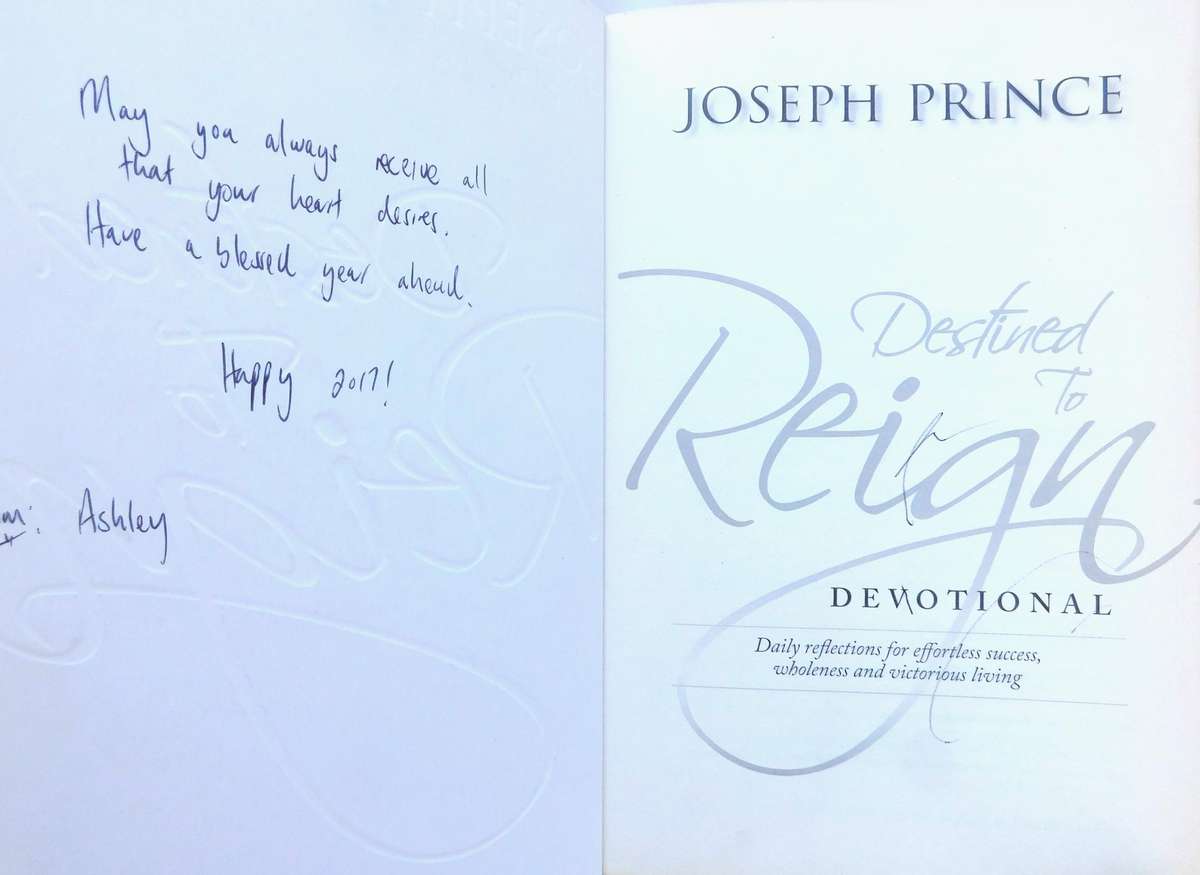 May you always receive all
that your heart desires.
Have a blessed year ahead.
Happy 2017!
Ashley
JOSEPH PRINCE
Destined
To
Reign
DEVOTIONAL
Daily reflections for effortless success,
wholeness and victorious living